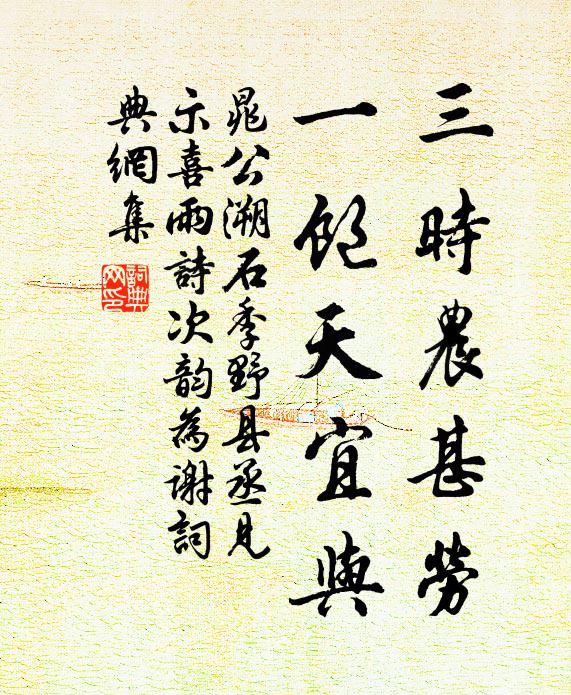 三時農甚勞
一飽天宜與
晁公溯石季野县丞見
示喜雨詩次韵為谢詞
典網集
詞典
网印